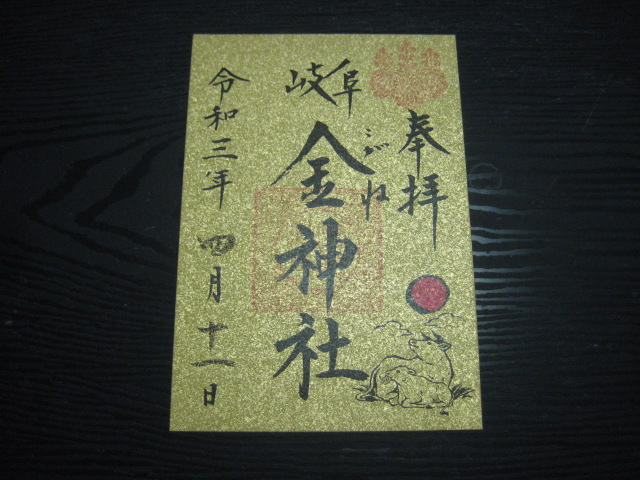 奉拝
岐阜
金神社
こがね
令和三年 四月十一日